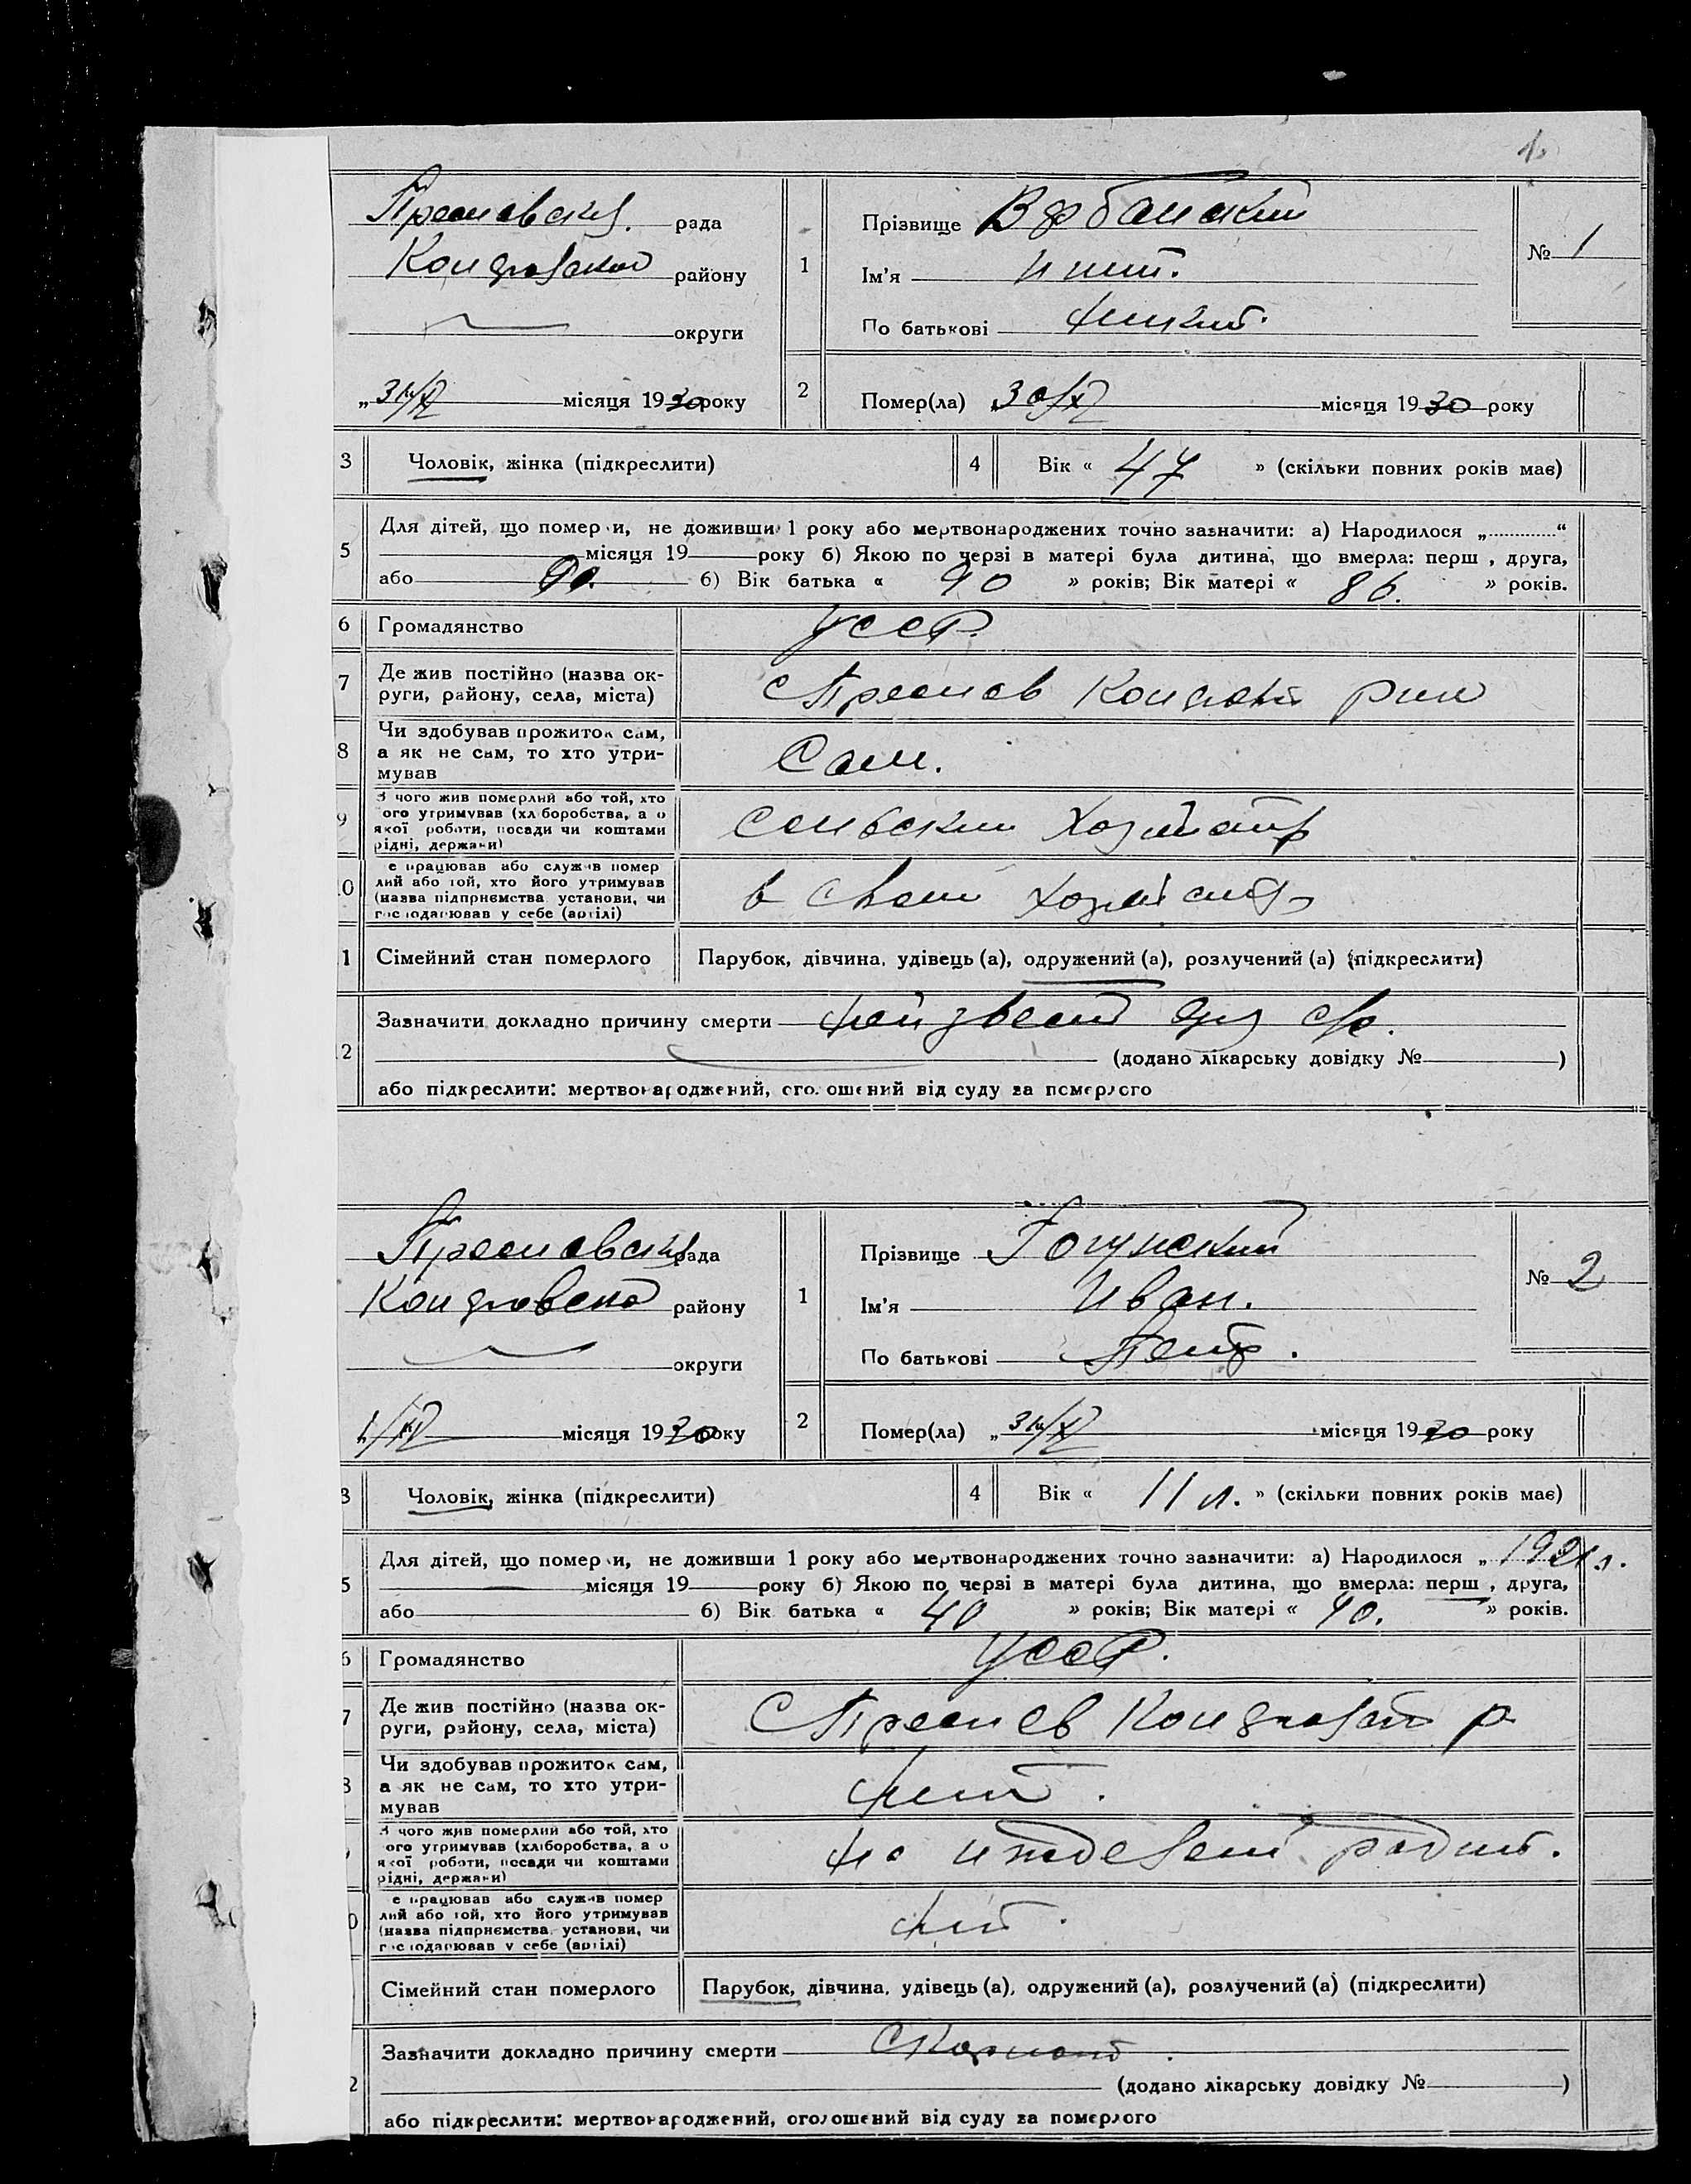 1
рада
району
округи
місяця 1930 року
1
Прізвище
Ім'я
По батькові
№ 1
2
Помер(ла) „30/X місяця 1930 року
3
Чоловік, жінка (підкреслити)
4
Вік « 47 » (скільки повних років має)
5
Для дітей, що померли, не доживши 1 року або мертвонароджених точно зазначити: а) Народилося „............“
місяця 19 року б) Якою по черзі в матері була дитина, що вмерла: перш , друга,
або б) Вік батька « 90 » років; Вік матері « 86. » років.
6
Громадянство
УССР.
7
Де жив постійно (назва ок-
руги, району, села, міста)
8
Чи здобував прожиток сам,
а як не сам, то хто утри-
мував
Сам.
9
З чого жив померлий або той, хто
ого утримував (хлiборобства, а о
якої роботи, посади чи коштами
рідні, держави)
0
е працював або служив помер
лий або той, хто його утримував
(назва підприємства установи, чи
господарював у себе (артілі)
в своем
1
Сімейний стан померлого
Парубок, дівчина, удівець (а), одружений (а), розлучений (а) (підкреслити)
2
Зазначити докладно причину смерти
(додано лікарську довідку № )
або підкреслити: мертвонароджений, оголошений від суду за померлого
рада
району
округи
місяця 1930 року
1
Прізвище Гогунский
Ім'я Иван.
По батькові Петр.
№ 2
2
Помер(ла) місяця 1930 року
3
Чоловік, жінка (підкреслити)
4
Вік « 11 л. » (скільки повних років має)
5
Для дітей, що померли, не доживши 1 року або мертвонароджених точно зазначити: а) Народилося „
місяця 19 року б) Якою по черзі в матері була дитина, що вмерла: перш , друга,
або б) Вік батька « 40 » років; Вік матері « 40. » років.
6
Громадянство
УССР.
7
Де жив постійно (назва ок-
руги, району, села, міста)
8
Чи здобував прожиток сам,
а як не сам, то хто утри-
мував
нет.
З чого жив померлий або той, хто
ого утримував (хліборобства, а о
якої роботи, посади чи коштами
рідні, держави)
на родит.
0
е працював або служив помер
лий або той, хто його утримував
(назва підприємства установи, чи
господарював у себе (артілі)
нет.
Сімейний стан померлого
Парубок, дівчина, удівець (а), одружений (а), розлучений (а) (підкреслити)
2
Зазначити докладно причину смерти
(додано лікарську довідку № )
або підкреслити: мертвонароджений, оголошений від суду за померлого